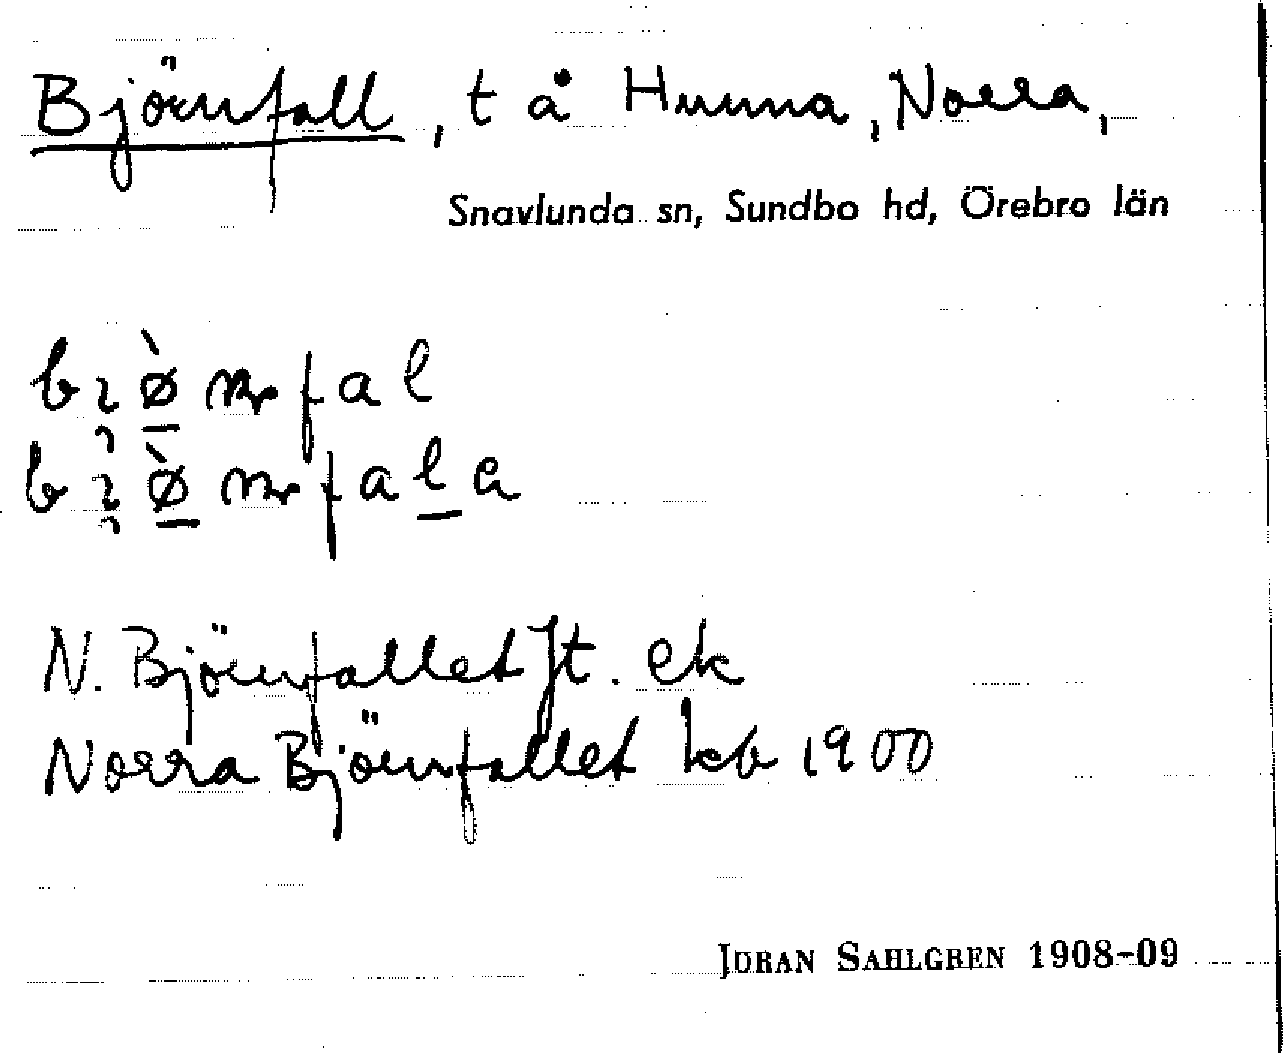 Björnfall, t å Hunna, Norra,
Snavlunda sn, Sundbo hd, Örebro län
N. Björnfallet Jt. ek
Norra Björnfallet kb 1900
JÖRAN SAHLGREN 1908-09